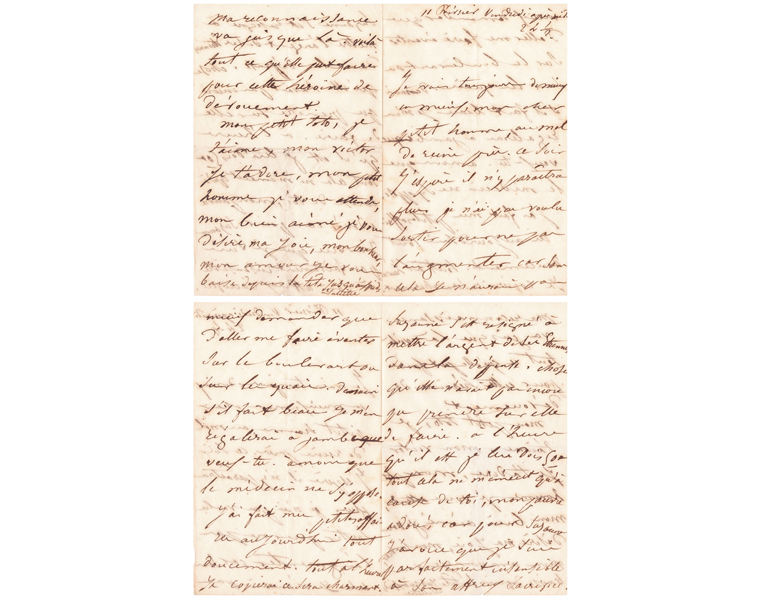 11 février vendredi après midi
Je vais toujours de mieux
en mieux, mon cher
petit homme, au mal
de reins près. Ce soir
j'espère il n'y paraîtra
plus. Je n'ai pas voulu
sortir pour ne pas
l'augmenter car sans
cela je n'aurais pas
mieux demandé que
d'aller me faire éventer
sur le boulevart ou
sur les quais. Demain
s'il fait beau je m'en
régalerai à jambe que
veux-tu. à moins que
le médecin ne s'y oppose.
J'ai fait mes petites affai
res aujourd'hui tout
doucement. tout à l'heure
Je copierai ce sera charmant.
Suzanne s'est résignée à
mettre l'argent de ses étrennes
dans la dépense. chose
qu'elle n'avait pas encore
pu prendre sur elle
de faire. à l'heure
qu'il est je lui dois
tout cela ni m'émeut qu'à
cause de toi, mon pauvre
adoré car pour Suzanne
j'avoue que je suis
parfaitement insensible
à son affreux sacrifice.
Ma reconnaissance
va jusque là. voilà
tout ce qu'elle peut faire
pour cette héroïne de
dévouement.
Mon petit toto, je
t'aime, mon victor
Je t'adore, mon petit
homme je vous attends,
mon bien aimé je vous
désire, ma joie, mon bonheur,
mon amour je vous
baise depuis la tête jusqu'aux pieds
Juliette